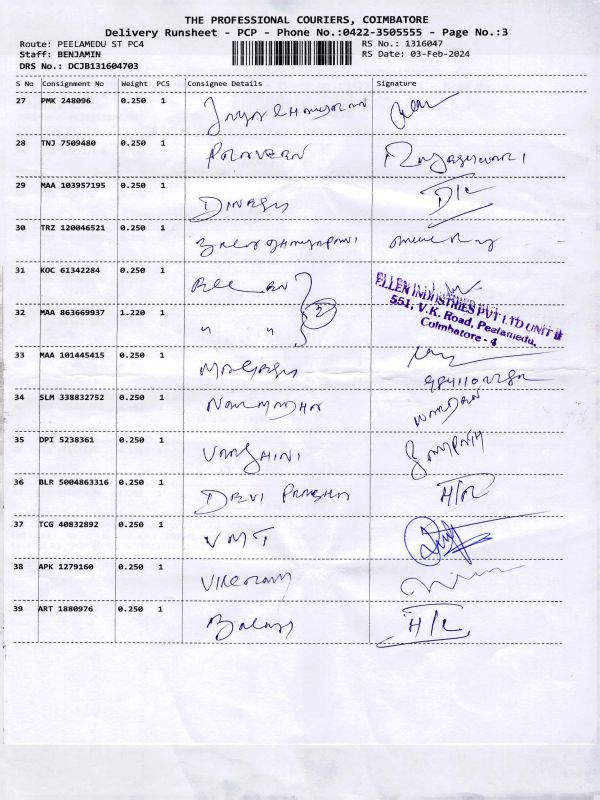 THE PROFESSIONAL COURIERS, COIMBATORE
Delivery Runsheet - PCP - Phone No.:0422-3505555 - Page No.:3
Route: PEELAMEDU ST PC4 RS No.: 1316047
Staff: BENJAMIN RS Date: 03-Feb-2024
DRS No.: DCJB131604703
S No Consignment No Weight PCS Consignee Details Signature
27 PMK 248096 0.250 1
28 TNJ 7509480 0.250 1 Rajeswari
29 MAA 103957195 0.250 1 DINESH D/L
30 TRZ 120046521 0.250 1
31 KOC 61342284 0.250 1
ELLEN INDUSTRIES PVT LTD UNIT II
551, V.K. Road, Peelamedu,
Coimbatore - 4
32 MAA 863669937 1.220 1 " " 2
33 MAA 101445415 0.250 1
34 SLM 338832752 0.250 1
35 DPI 5238361 0.250 1 VARSHINI
36 BLR 5004863316 0.250 1 DEVI PRABHA H/R
37 TCG 40832892 0.250 1 VMT
38 APK 1279160 0.250 1
39 ART 1880976 0.250 1 H/L